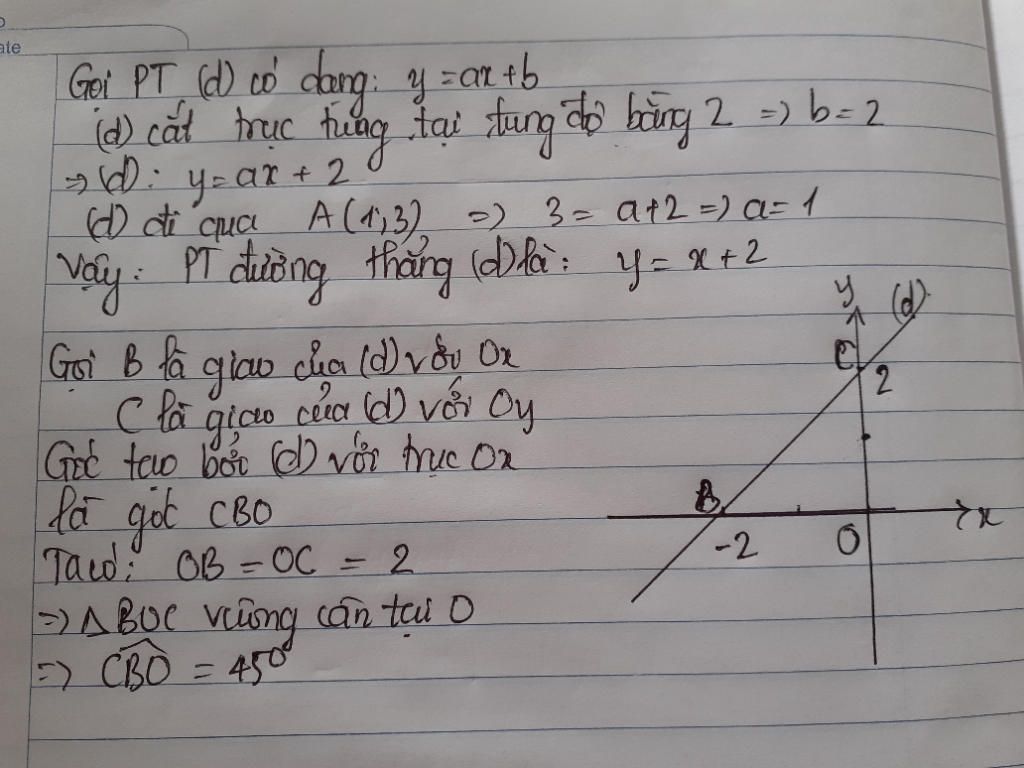 ate
Gọi PT (d) có dạng: y = ax + b
(d) cắt trục tung tại tung độ bằng 2 => b = 2
=> (d): y = ax + 2
(d) đi qua A(1;3) => 3 = a+2 => a = 1
Vậy: PT đường thẳng (d) là: y = x + 2
Gọi B là giao của (d) với Ox
C là giao của (d) với Oy
Góc tạo bởi (d) với trục Ox
là góc CBO
Ta có: OB = OC = 2
=> Δ BOC vuông cân tại O
=> CBO = 45°
y
(d)
C
2
B
-2
O
x